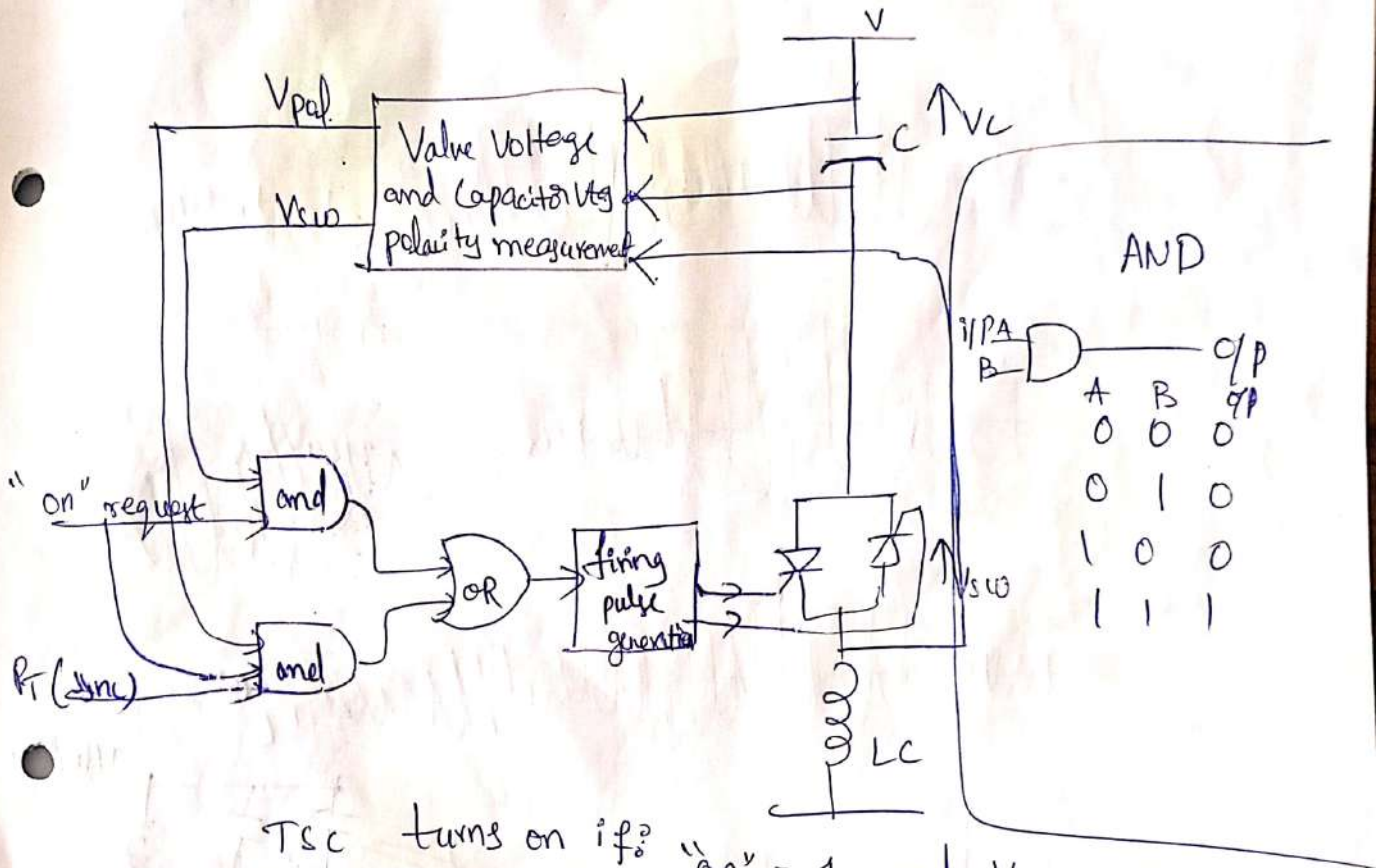 V
Vpol.
Valve Voltage
and Capacitor Vtg
polarity measurement
C
VC
Vsw
AND
i/p A
B
o/p
A B o/p
0 0 0
0 1 0
1 0 0
1 1 1
"on" request
and
OR
firing
pulse
generation
Vsw
PT (sync)
and
LC
TSC turns on if: